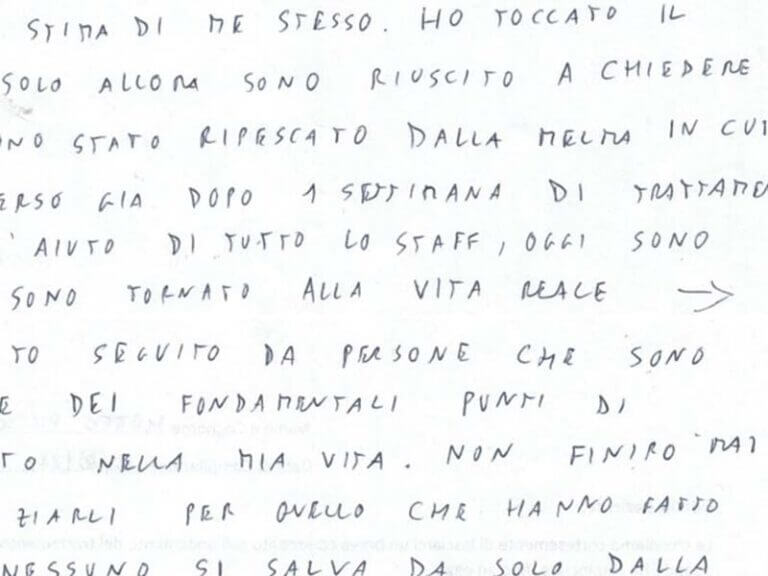 STIMA DI ME STESSO. HO TOCCATO IL
SOLO ALLORA SONO RIUSCITO A CHIEDERE
ONO STATO RIPESCATO DALLA MELMA IN CUI
ERSO GIA DOPO 1 SETTIMANA DI TRATTAME
' AIUTO DI TUTTO LO STAFF, OGGI SONO
SONO TORNATO ALLA VITA REALE →
TO SEGUITO DA PERSONE CHE SONO
E DEI FONDAMENTALI PUNTI DI
TO NELLA MIA VITA. NON FINIRO' MAI
ZIARLI PER QUELLO CHE HANNO FATTO
NESSUNO SI SALVA DA SOLO DALLA